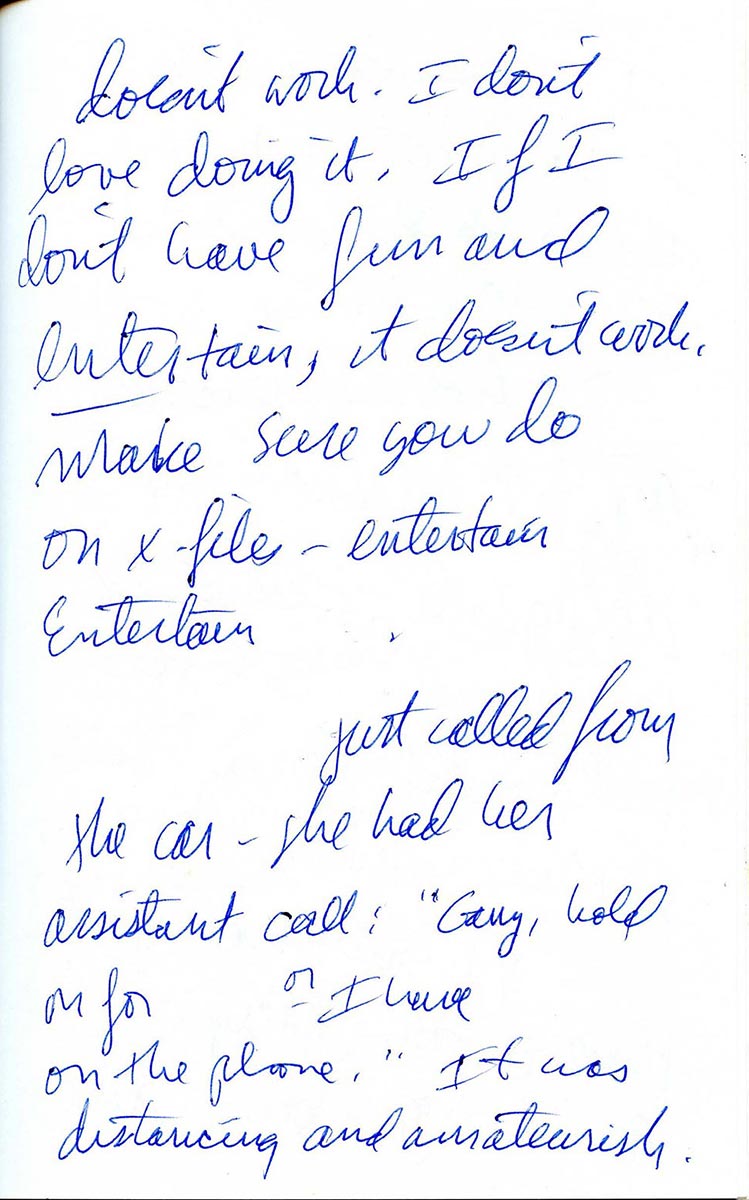 doesn't work. I don't
love doing it. If I
don't have fun and
entertain, it doesn't work.
Make sure you do
on x-files - entertain
Entertain
just called from
the car - she had her
assistant call: "Gary, hold
on for or I have
on the phone." It was
distancing and amateurish.